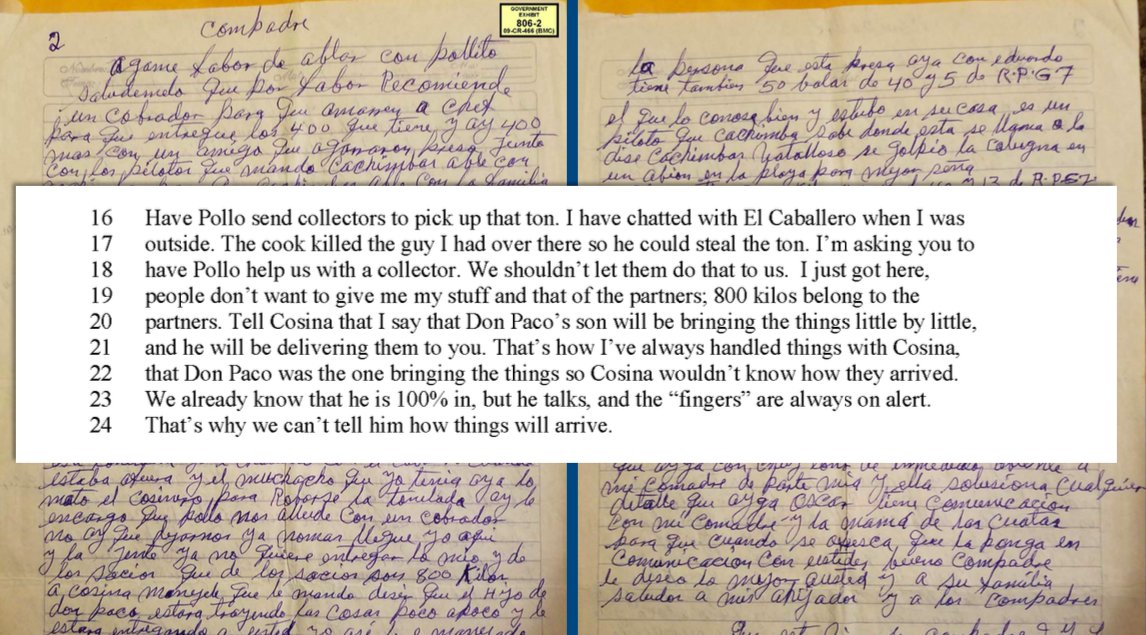 2
compadre
GOVERNMENT
EXHIBIT
806-2
09-CR-466 (BMC)
agame fabor de ablar con pollito
saludemelo que por fabor Recomiende
un cobrador para que amarren a chef
para que entregue los 400 que tiene y ay 400
mas con un amigo que agarraron preso junto
con los pilotos que mando cachimbar able con
16 Have Pollo send collectors to pick up that ton. I have chatted with El Caballero when I was
17 outside. The cook killed the guy I had over there so he could steal the ton. I’m asking you to
18 have Pollo help us with a collector. We shouldn’t let them do that to us. I just got here,
19 people don’t want to give me my stuff and that of the partners; 800 kilos belong to the
20 partners. Tell Cosina that I say that Don Paco’s son will be bringing the things little by little,
21 and he will be delivering them to you. That’s how I’ve always handled things with Cosina,
22 that Don Paco was the one bringing the things so Cosina wouldn’t know how they arrived.
23 We already know that he is 100% in, but he talks, and the “fingers” are always on alert.
24 That’s why we can’t tell him how things will arrive.
estaba afuera y el muchacho que yo tenia aya lo
mato el cosinero para Robarse la tonelada ay le
encargo que pollo nos allude con un cobrador
no ay que dejarnos ya nomas llegue yo aqui
y la jente ya no quiere entregar lo mio y de
los socios que de los socios son 800 Kilos
a cosina que le mando desir que el Hijo de
don paco estara trayendo las cosas poco apoco y le
estara entregando a usted yo asi
la persona que esta presa aya con eduardo
tiene tambien 50 balas de 40 y 5 de R.P.G 7
el que lo conose bien y estubo en su casa es un
piloto que cachimba sabe donde esta se llama o la
dise cachimbas se golpio la en
un abion en la playa por mejor seña
mi comadre de parte mia y ella solusiona cualquier
detalle que ayga Oscar tiene comunicacion
con mi comadre y la mama de las cuatas
para que cuando se ofresca que la ponga en
comunicacion con ustedes bueno compadre
le deseo lo mejor austed y a su familia
saludos a mis ahijados y a los compadres